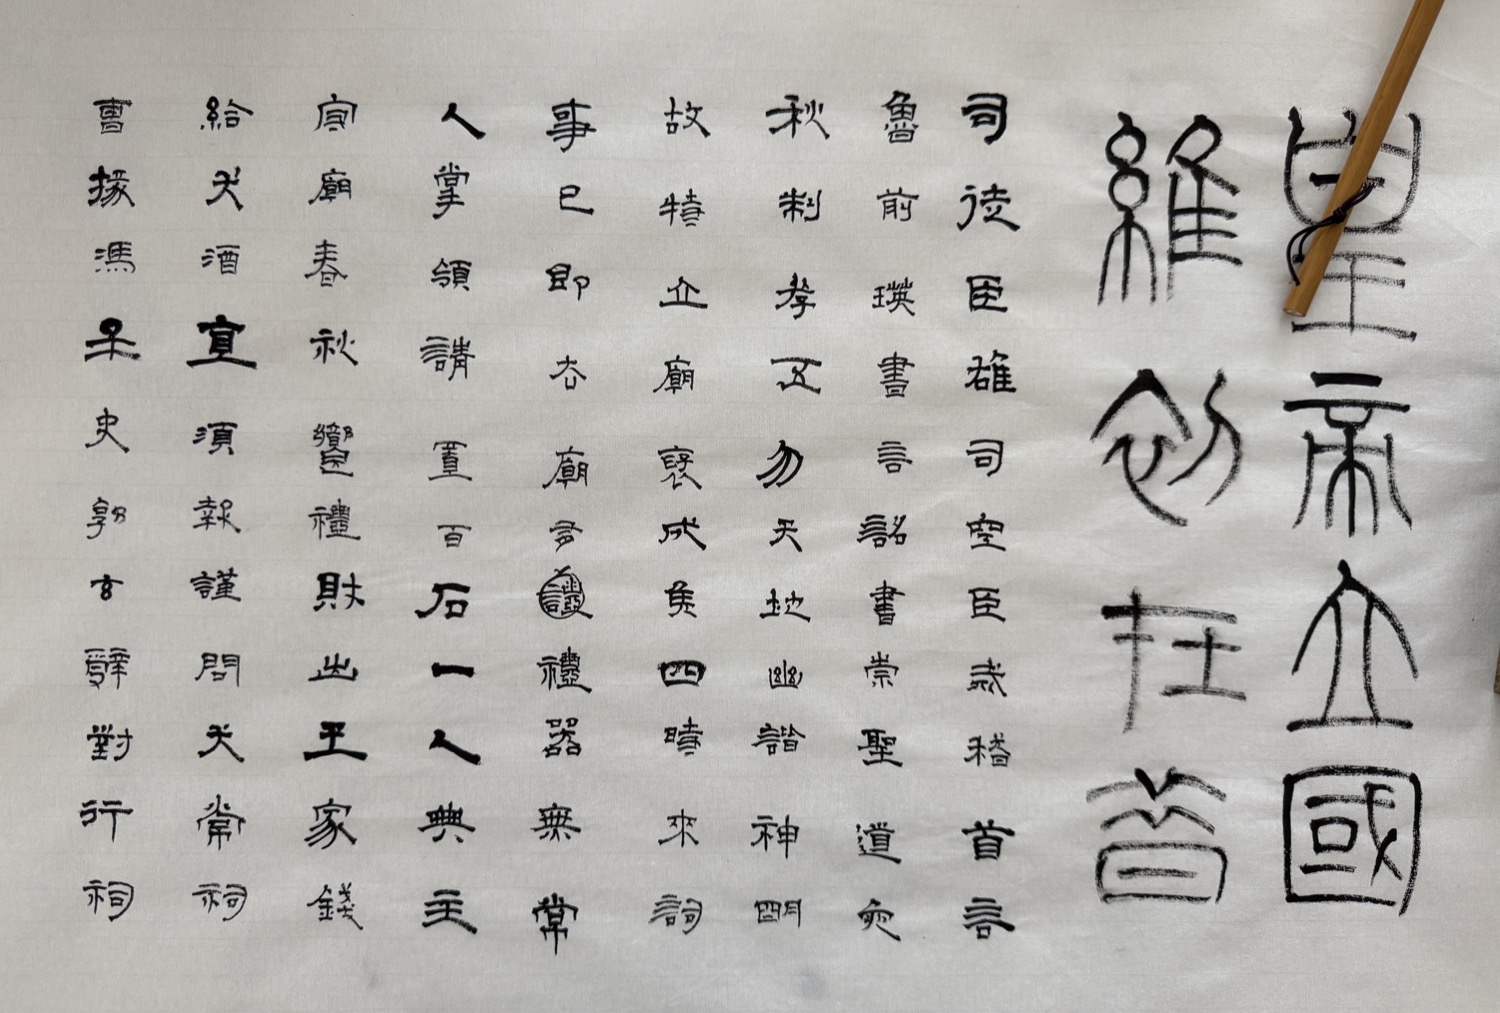 皇帝立國
維初在昔
司徒臣雄司空臣戒稽首言
魯前瑛書言詔書崇聖道勉
秋制孝五勿天地幽神明
故特立廟褒成侯四時來祠
事已即去廟有禮器無常
人掌領請置百石一人典主
守廟春秋饗禮財出王家錢
給犬酒直須報謹問大常祠
曹掾馮牟史郭玄辭對行祠